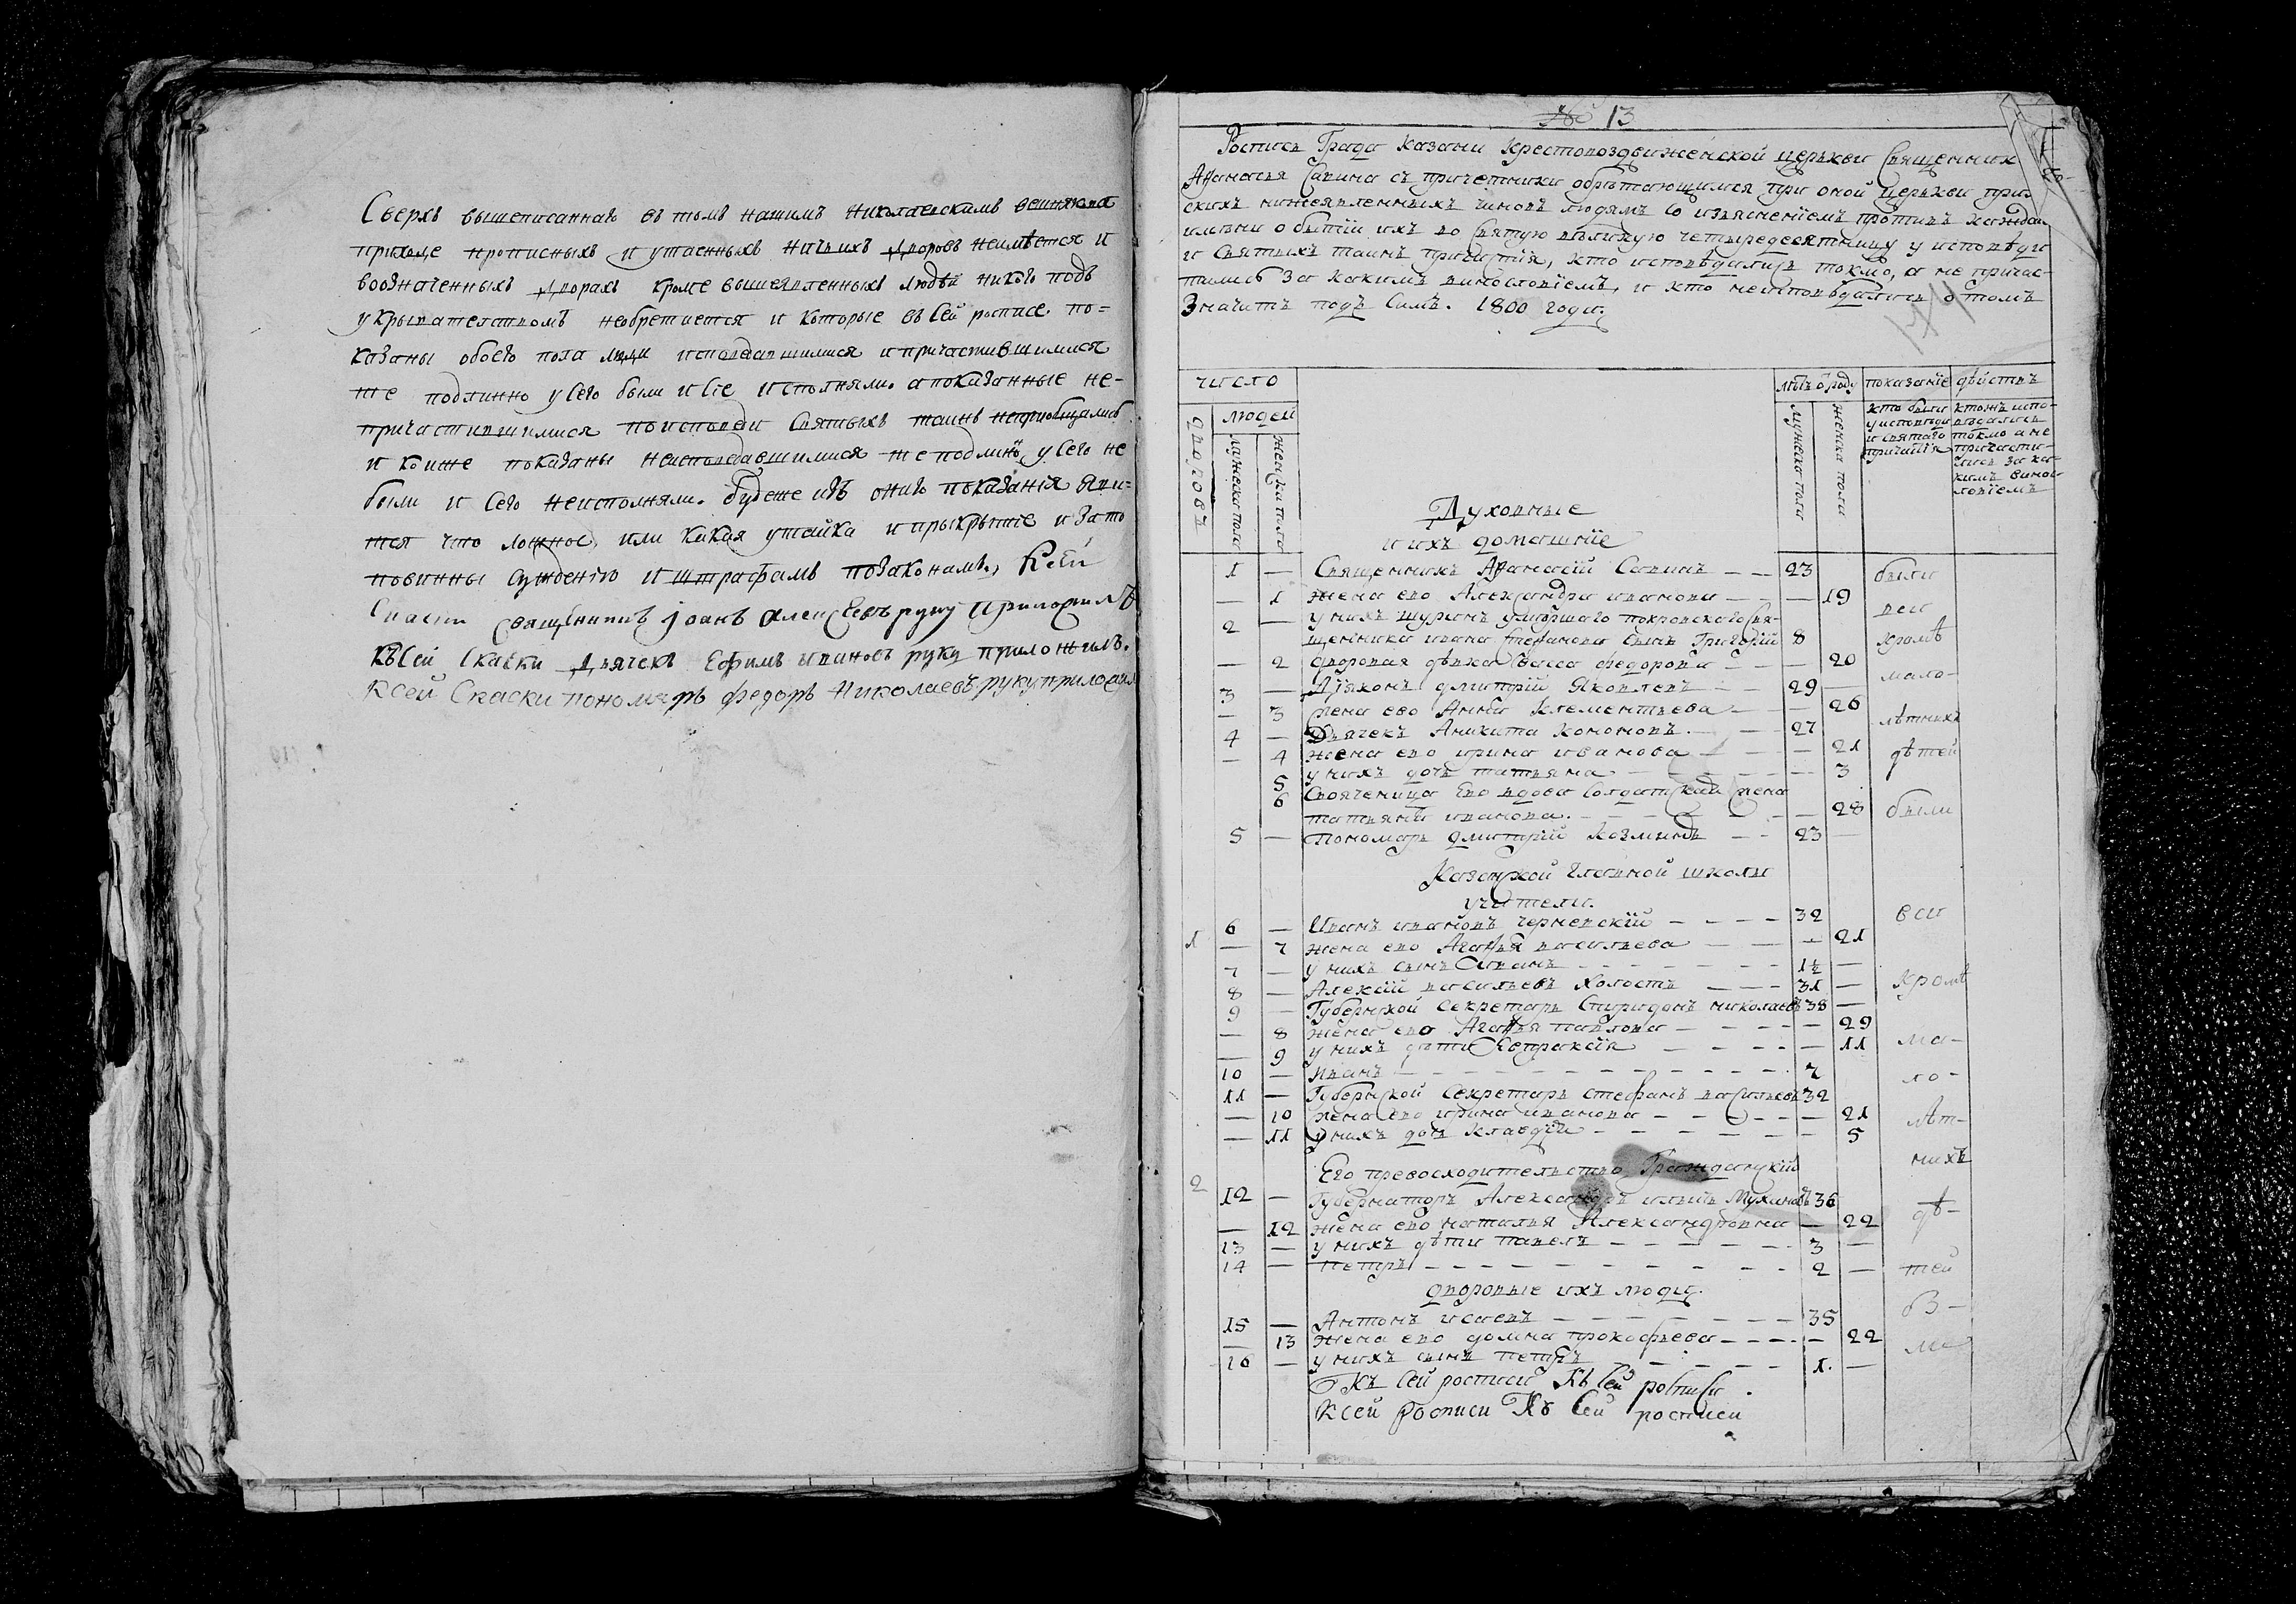 Сверхъ вышеписаннаго въ томъ нашимъ Николаевскимъ
приходе прописныхъ и утаенныхъ ничьихъ дворовъ неимѣется и
воозначенныхъ дворахъ кроме вышеявленныхъ людѣй никого подъ
укрывателствомъ необретается и которые въ сей росписе по=
казаны обоего пола люди исповедавшимися и причастившимися
те подлинно у сего были и сіе исполняли. а показанные не-
причастившимися поисповеди святыхъ таинъ неприобщались
и коиже показаны неисповедавшимися те подлино у сего не
были и сего неисполняли. будеже изъ онаго показанія яви=
тся что ложное, или какая утайка и прыкрытіе и зато
повинны сужденію и штрафамъ позаконамъ, Ксей
скаски священникъ Іоанъ Алексеевъ руку приложилъ
къ сей скаски дьячекъ Ефимъ Ивановъ руку приложилъ.
Ксей скаски пономарь Федоръ Николаевъ руку приложил
№ 13
Роспись Града Казани Крестовоздвиженской церькви Священник
Афанасья Савина съ причетники обрѣтающимся при оной церькви прих
скихъ нижеявленныхъ чиновъ людямъ со изъясненіемъ противъ каждаи
имяни о бытіи ихъ во святую великую четыредесятницу у исповѣди
и святыхъ таинъ причастія, кто исповѣдались токмо, а не причас-
тились за какимъ винословіемъ, и кто неисповѣдались о томъ
значитъ подъ симъ. 1800 года.
174
число
лѣтъ отроду
показаніе дѣйствъ
дворовъ
людей
мужеска пола
женска пола
мужеска пола
женска пола
кто были
у исповѣди
и святаго
причастія
ктожъ испо-
вѣдались
токмо а не
причасти-
лись за ка-
кимъ винос-
ловіемъ
Духовные
и ихъ домашніе
1 — Священникъ Афанасій Савинъ — — 23 были
— 1 жена ево Александра иванова — — — 19
вси
2 — у нихъ шуринъ умершаго покровскаго свя-
щенника ивана стефанова сынъ Григорій 8 кромѣ
— 2 дворовая дѣвка Васса федорова — — 20
мало-
3 — Діяконъ дмитрій Яковлевъ — — 29 —
— 3 жена ево Анна Клементьева — — 26
лѣтнихъ
4 — Дьячекъ Аникита Кононовъ. — — 27
— 4 жена ево ирина иванова — — 21 дѣтей
5 у нихъ дочь татьяна — — — 3
6 Свояченица Ево вдова солдатская жена
татьяна иванова. — — — 28 были
5 — Пономарь дмитрій Козминъ — — 23 —
Казанской главной школы
учители.
6 — Иванъ ивановъ черневскій — — — 32 вси
1 — 7 жена ево Агафья васильева — — — 21
7 — у нихъ сынъ Иванъ — — — 1½ —
8 — Алексій васильевъ холостъ — — — 31 — кромѣ
9 — Губернской Секретарь Спиридонъ николаевъ 38 —
— 8 жена ево Агафья павлова — — — 29
— 9 у нихъ дѣти Евпраксія — — — 11 ма-
10 — Иванъ — — — 7
ло-
11 — Губернской Секретарь стефанъ васильевъ 32
— 10 жена ево ирина иванова — — — 21 лѣт-
— 11 у нихъ дочь клавдія — — — 5
нихъ
Его превосходительство Гражданскій
2 12 — Губернаторъ Александръ ильичь Мухановъ 36
дѣ-
— 12 жена ево наталья Александровна — 22
13 — у нихъ дѣти павелъ — — — 3 —
14 — петръ — — — 2 — тей
дворовые ихъ люди.
бз-
15 — Антонъ исаевъ — — — 35
— 13 жена ево домна прокофьева — — — 22
16 — у нихъ сынъ петръ — — — 1. —
Къ сей росписи Къ сей росписи
Ксей росписи Къ сей росписи